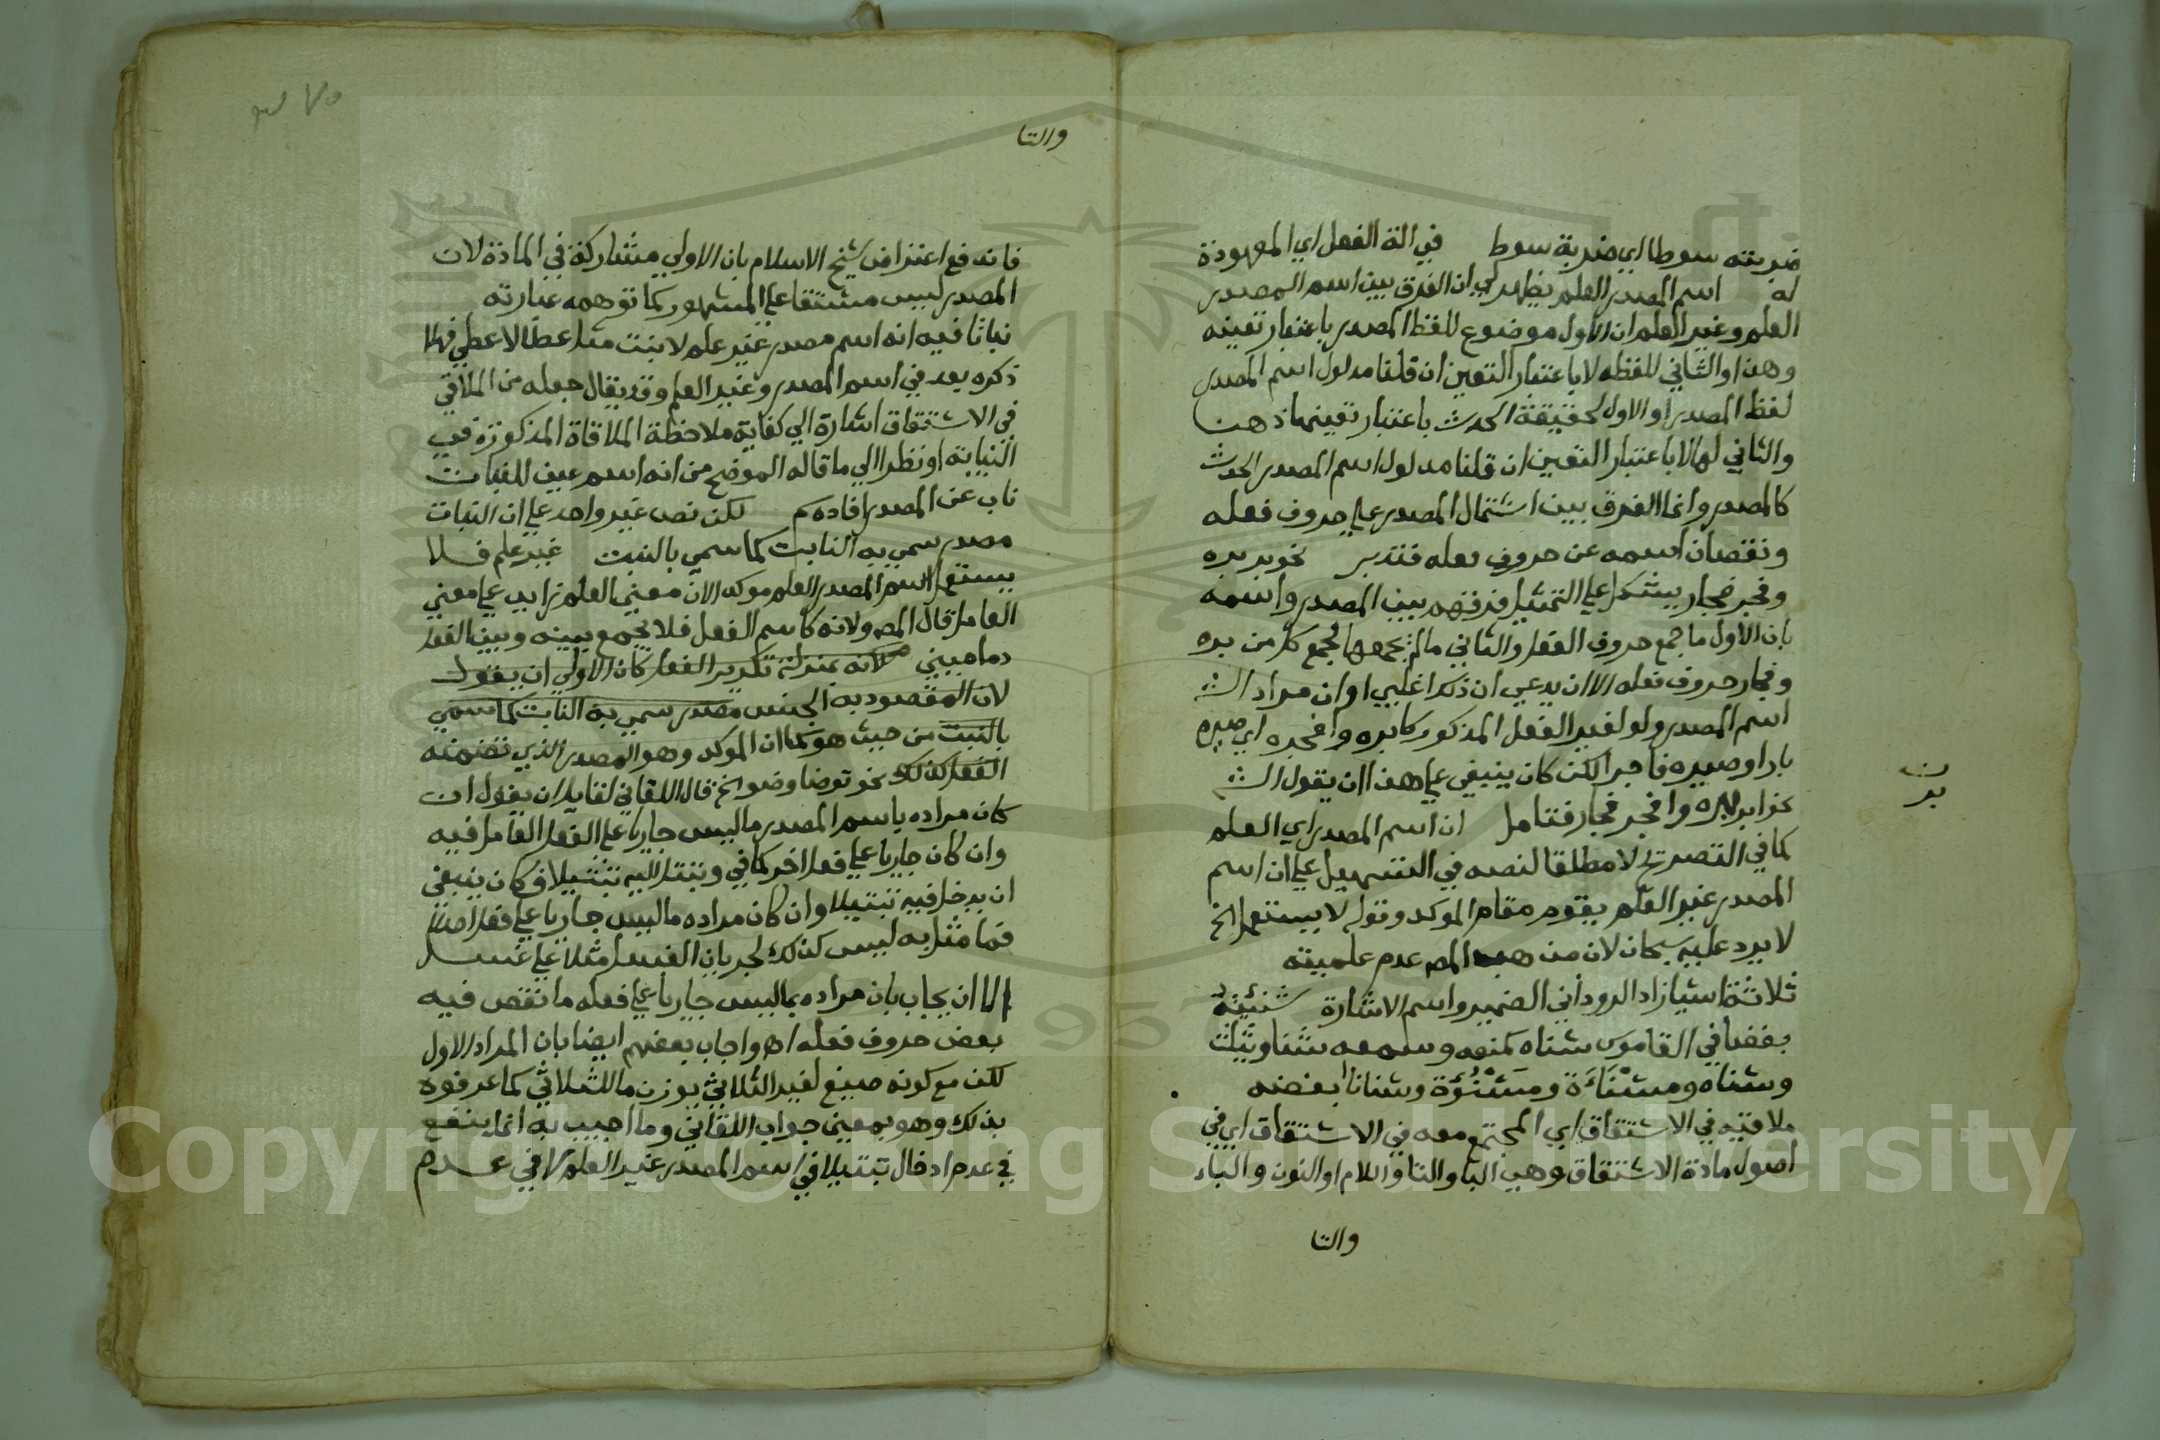 ضربته سوطا اي ضربة سوط في الة الفعل اي المعهودة
له اسم المصدر العلم يظهر لي ان الفرق بين اسم المصدر
العلم وغير العلم ان الاول موضوع للفظ المصدر باعتبار تعينه
وهنا والثاني للفظه لا باعتبار التعين ان قلنا مدلول اسم المصدر
لفظ المصدر او الاول لحقيقة الحدث باعتبار تعينها ذهنا
والثاني لها لا باعتبار التعين ان قلنا مدلول اسم المصدر الحدث
كالمصدر وانما الفرق بين اشتمال المصدر على حروف فعله
ونقصان اسمه عن حروف فعله فتدبر نحو بر بره
وفجر فجار يشكل على التمثيل فرقتهم بين المصدر واسمه
بان الاول ما جمع حروف الفعل والثاني ما لم يجمعها لجمع كل من بره
وفجار حروف فعله الا ان يدعي ان ذكرا غلبي او ان مراد الش
اسم المصدر ولو لغير الفعل المذكور كابره وافجره اي صيره
بارا وصيره فاجرا لكن كان ينبغي على هذا ان يقول الش
نحو ابر بره وافجر فجار فتامل ان اسم المصدر اي العلم
كما في التصريح لا مطلقا لنصه في التسهيل على ان اسم
المصدر غير العلم يقوم مقام الموكد وقوله لا يستعمل الخ
لا يرد عليه سبحان لان مذهب المص عدم علميته
ثلاثة اشيا زاد الروداني الضمير واسم الاشارة شنئته
بغضا في القاموس شناه كمنعه وسمعه شنا ويثلث
وشناه ومشناءة ومشنؤة وشنانا ابغضه
ملاقيه في الاشتقاق اي المجتمع معه في الاشتقاق اي في
اصول مادة الاشتقاق وهي البا والتا واللام او النون والباء
والتا
والتا
فاندفع اعتراض شيخ الاسلام بان الاولي مشاركة في المادة لان
المصدر ليس مشتقا على المشهور كما توهمه عبارته
نباتا فيه انه اسم مصدر غير علم لانبت مثل عطا لاعطي فهلا
ذكره بعد في اسم المصدر وغير العلم وقد يقال جعله من الملاقي
في الاشتقاق اشارة الي كفاية ملاحظة الملاقاة المذكورة في
النيابة او نظرا الي ما قاله الموضح من انه اسم عين للنبات
ناب عن المصدر افاده سم لكن نص غير واحد على ان النبات
مصدر سمي به النابت كما سمي بالنبت غير علم فلا
يستعمل اسم المصدر العلم موكدا لان معني العلم زايد على معني
العامل قال المص ولانه كاسم الفعل فلا يجمع بينه وبين الفعل
دماميني لانه بمنزلة تكرير الفعل كان الاولي ان يقول
لان المقصود به الجنس مصدر سمي به النابت كما سمي
بالنبت من حيث هو كما ان الموكد وهو المصدر الذي تضمنه
الفعل كذلك نحو توضا وضوا الخ قال اللقاني لقايل ان يقول ان
كان مراده باسم المصدر ما ليس جاريا على الفعل العامل فيه
وان كان جاريا على فعل اخر كما في وتبتل اليه تبتيلا فكان ينبغي
ان يدخل فيه تبتيلا وان كان مراده ما ليس جاريا على فعل اصلا
فما مثل به ليس كذلك لجريان الغسل مثلا على غسل
الا ان يجاب بان مراده بما ليس جاريا على فعله ما نقص فيه
بعض حروف فعله اه واجاب بعضهم ايضا بان المراد الاول
لكن مع كونه صيغ لغير الثلاثي بوزن ما للثلاثي كما عرفوه
بذلك وهو بمعني جواب اللقاني وما اجيب به انما ينفع
في عدم ادخال تبتيلا في اسم المصدر غير العلم لا في عدم